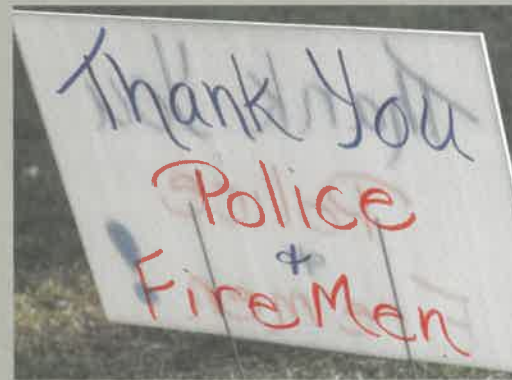 Thank You
Police
&
FireMen